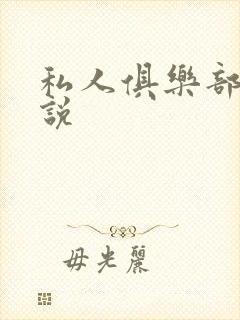 私人俱樂部
說
毋光麗